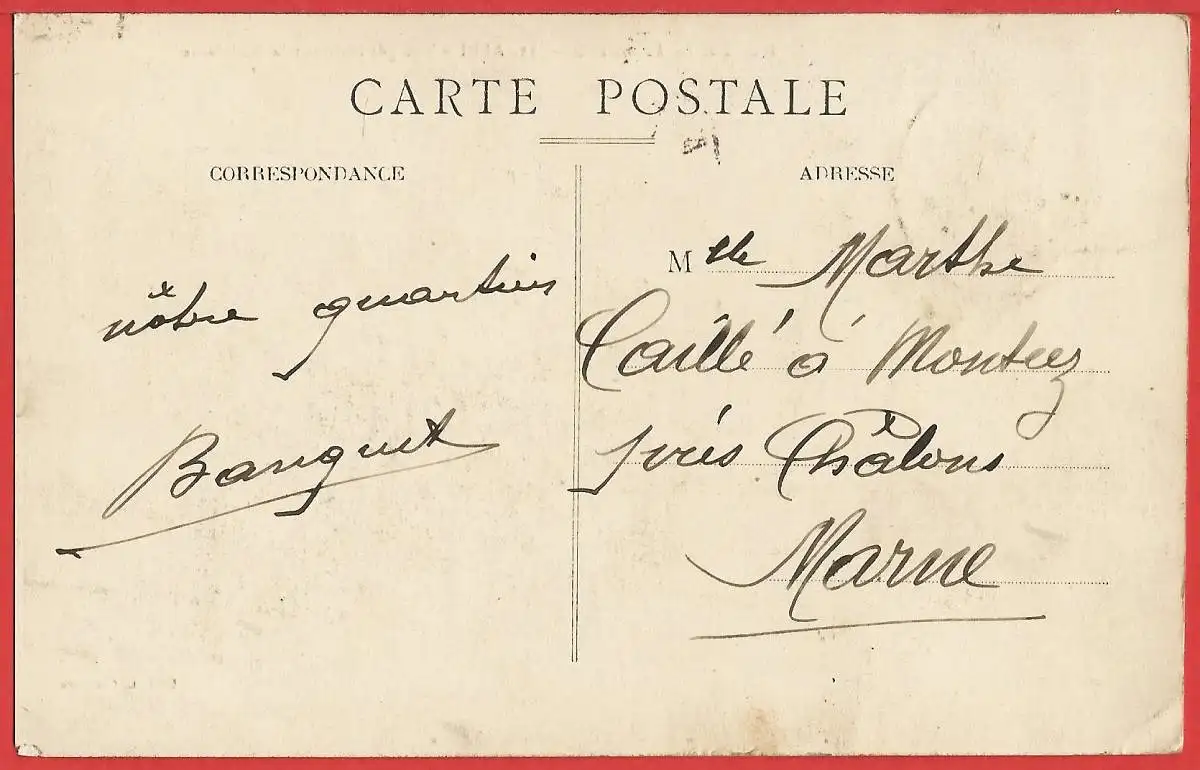 CARTE POSTALE
CORRESPONDANCE
ADRESSE
nôtre quartier
Banquet
Mlle Marthe
Caillé à
près Châlons
Marne